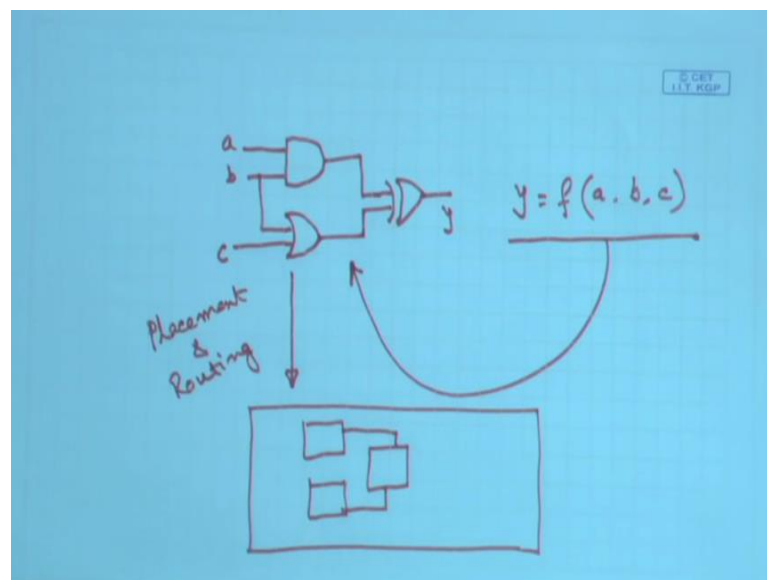 © CET
I.I.T. KGP
a
b
c
y
y = f (a, b, c)
Placement
&
Routing